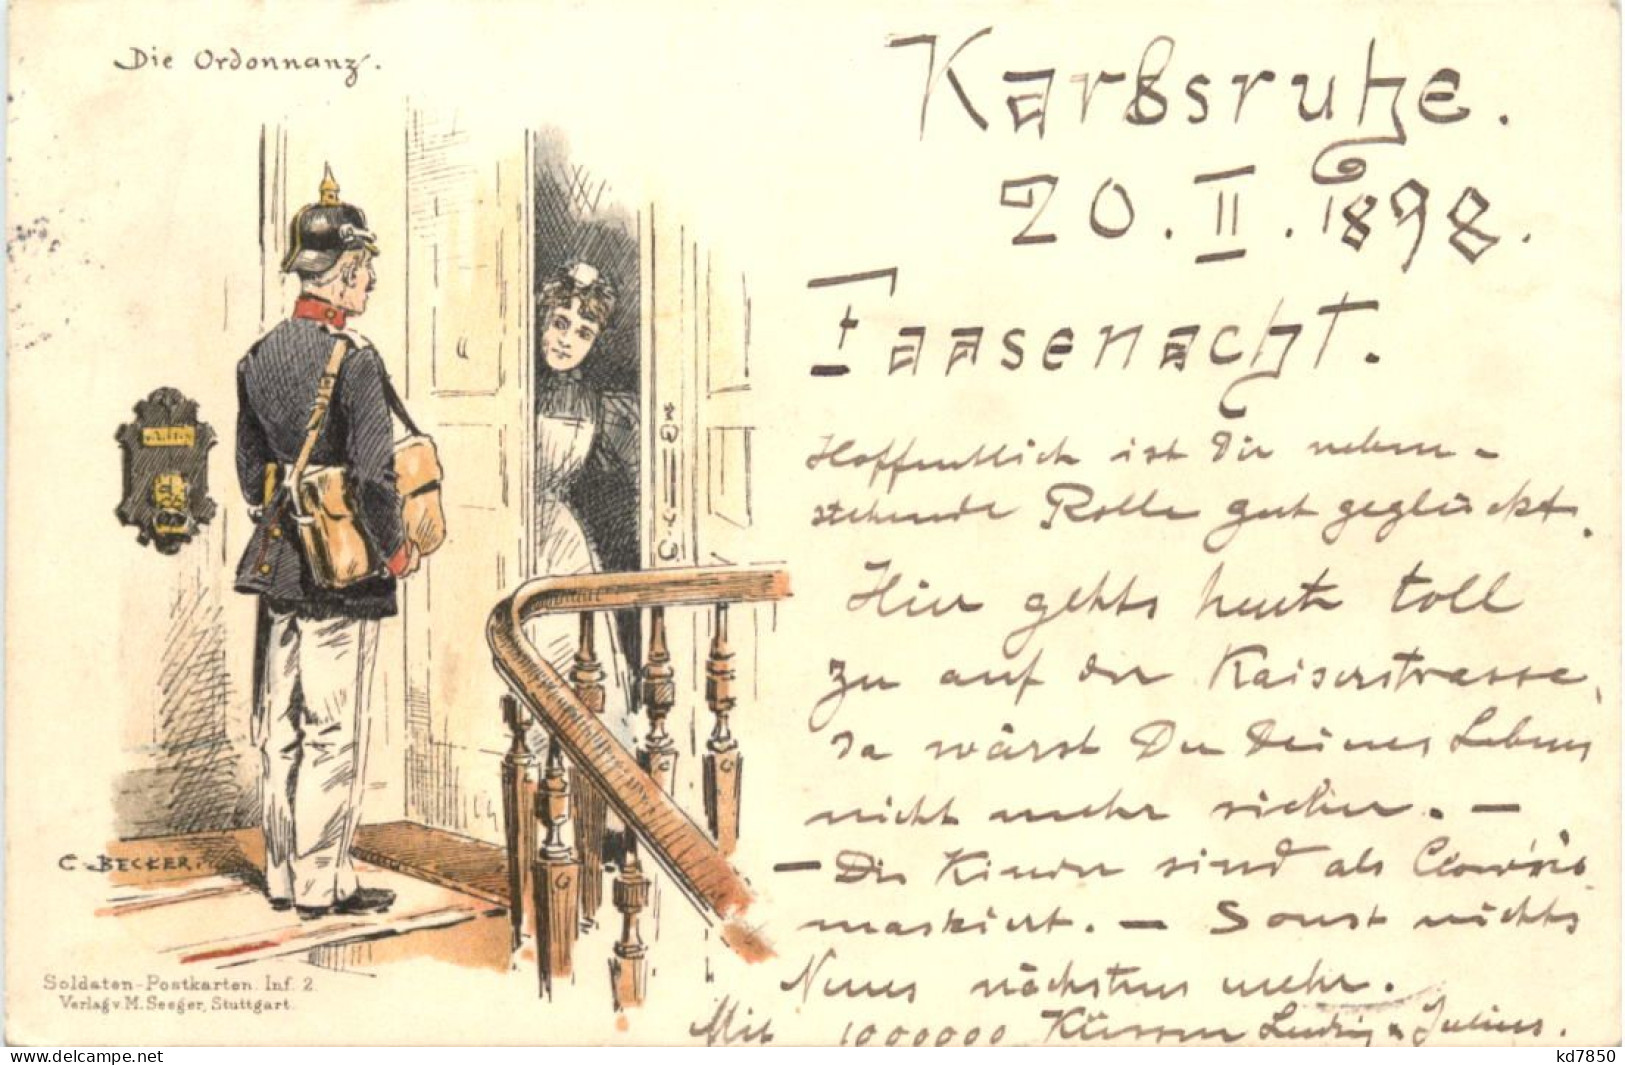 Die Ordonnanz.
Karlsruhe.
20. II. 1898.
Faasenacht.
Hoffentlich ist Dir neben-
stehende Rolle gut geglückt.
Hier gehts heute toll
zu auf der Kaiserstrasse,
da wärst Du Deines Lebens
nicht mehr sicher. —
— Die Kinder sind als Clowns
maskiert. — Sonst nichts
Neues nächstens mehr.
Mit 1000000 Küssen Ludwig u Julius.
C. BECKER.
Soldaten-Postkarten. Inf. 2.
Verlag v. M. Seeger, Stuttgart.
www.delcampe.net
kd7850